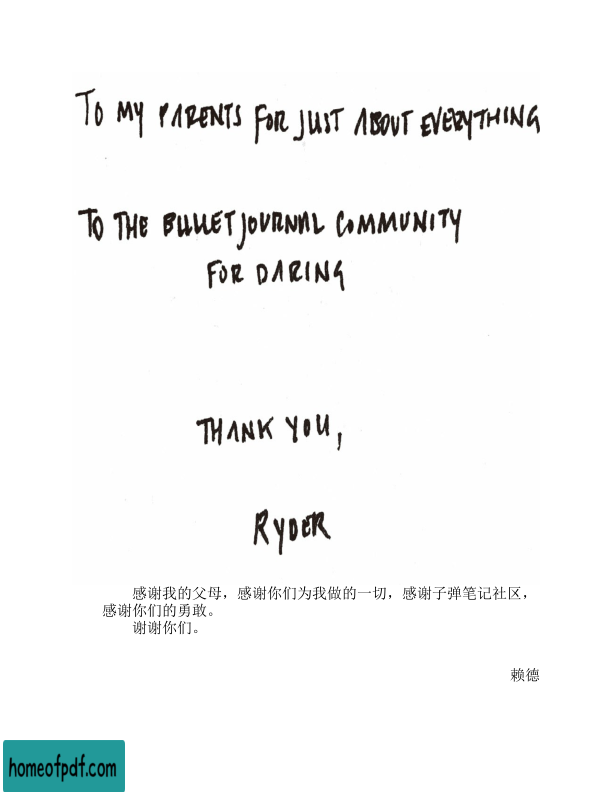 TO MY PARENTS FOR JUST ABOUT EVERYTHING
TO THE BULLET JOURNAL COMMUNITY
FOR DARING
THANK YOU,
RYDER
感谢我的父母，感谢你们为我做的一切，感谢子弹笔记社区，
感谢你们的勇敢。
谢谢你们。
赖德
homeofpdf.com